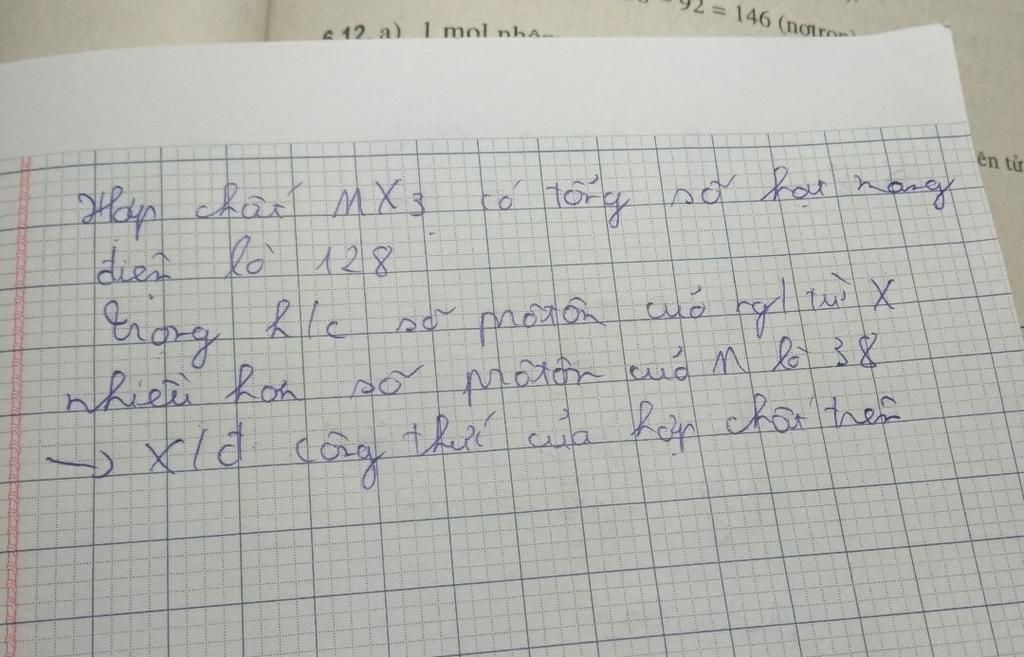 92 = 146 (nơtron)
6.12. a) 1 mol
ên tử
Hợp chất MX3 có tổng số hạt mang
điện là 128
trong h/c số proton của ng/tử X
nhiều hơn số proton của M là 38
→ X/đ công thức của hợp chất trên